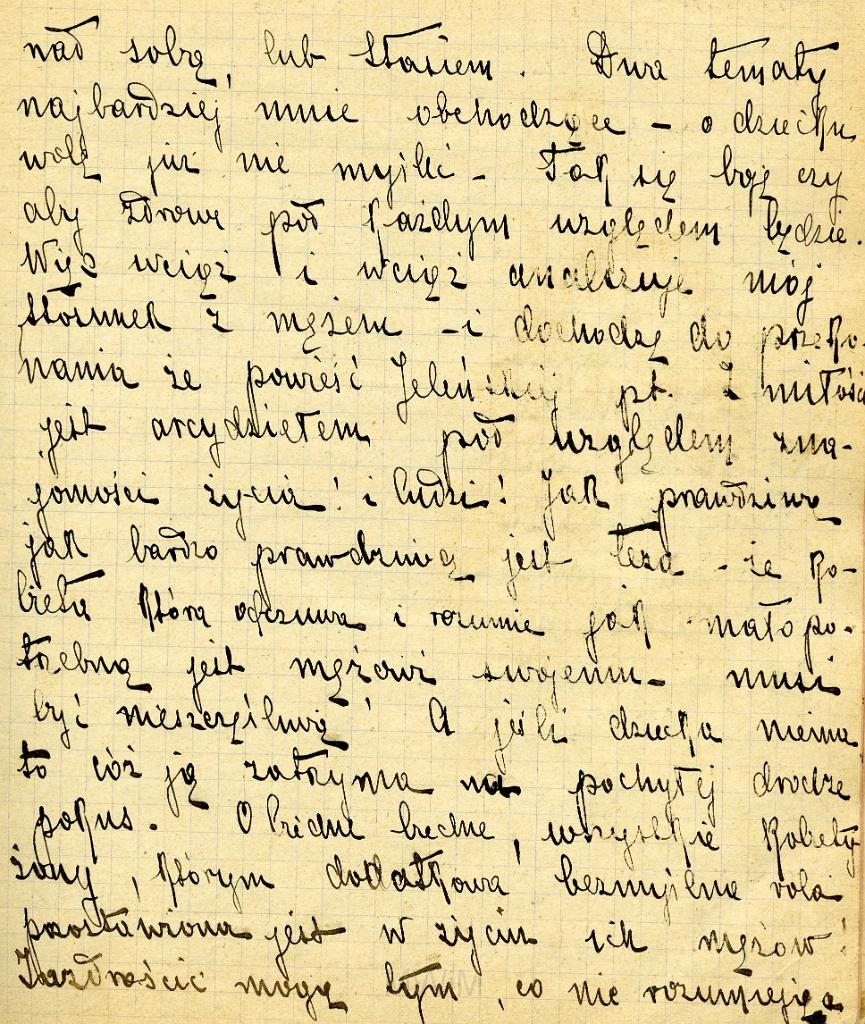 nad sobą, lub Stasiem. Dwa tematy
najbardziej mnie obchodzące - o dziecku
wolę już nie myśleć - Tak się boję czy
aby zdrowe pod każdym względem będzie.
Więc wciąż i wciąż analizuję mój
stosunek z mężem - i dochodzę do przeko-
nania że powieść Jeleńskiej pt. Z miłości
jest arcydziełem pod względem zna-
jomości życia! i ludzi! Jak prawdziwą
jak bardzo prawdziwą jest teza - że ko-
bieta która odczuwa i rozumie jak mało po-
trzebną jest mężowi swojemu - musi
być nieszczęśliwą! A jeśli dziecka niema
to cóż ją zatrzyma na pochyłej drodze
pokus. O biedne biedne, wszystkie kobiety
żony, którym dodatkowa bezmyślna rola
pozostawiona jest w życiu ich mężów!
Zazdrościć mogę tym, co nie rozumieją